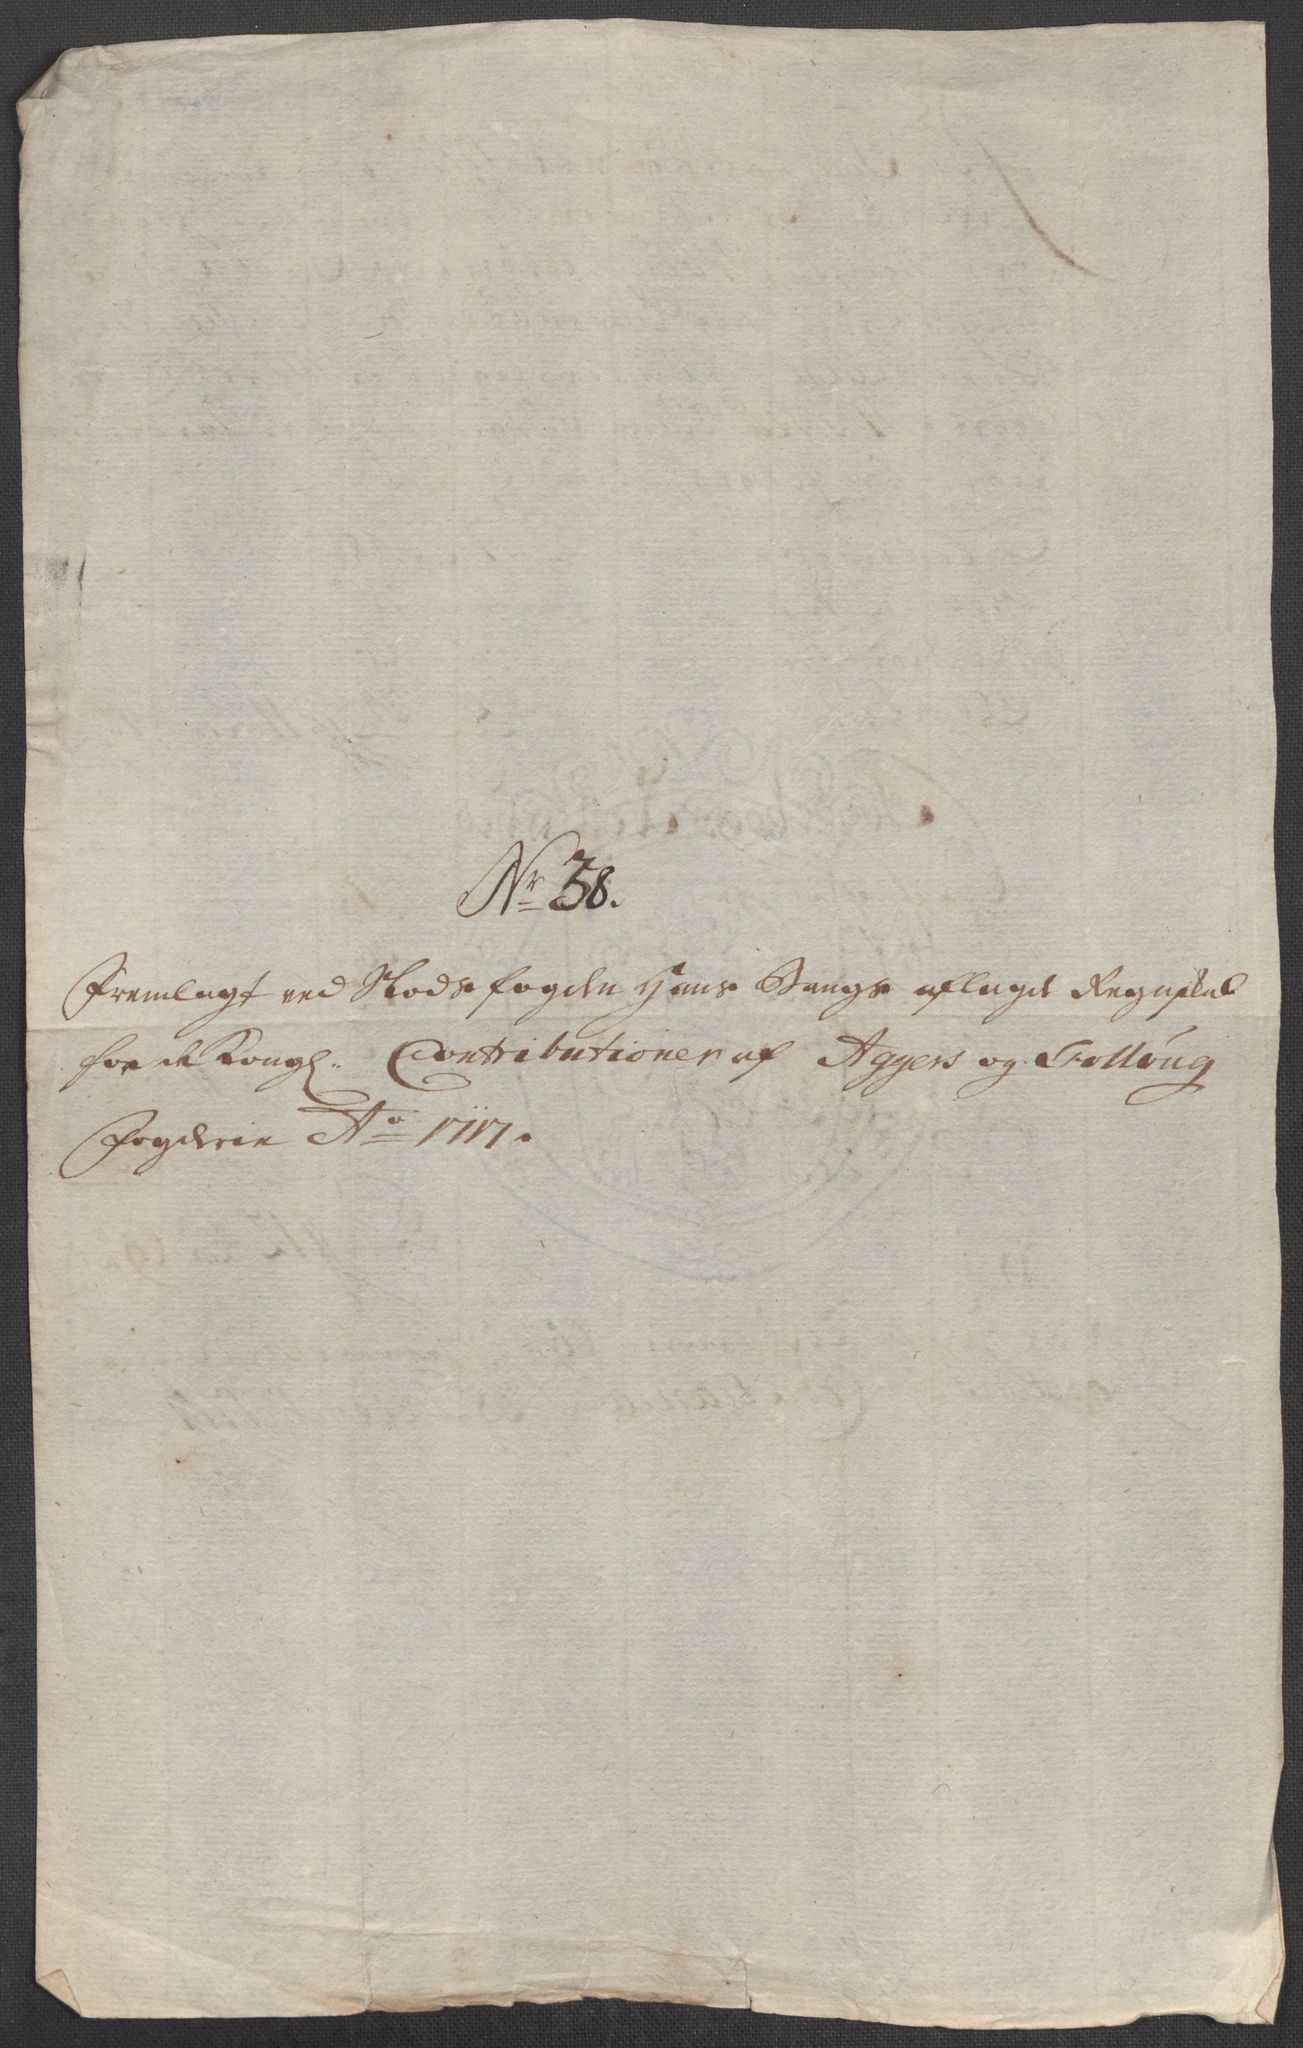 Nr 38.
Fremlagt ved Slodsfogden Hans Bangs aflagde Regnskab
for de Kongl. Contributioner af Aggers og Folloug
Fogderie Ao 1717.